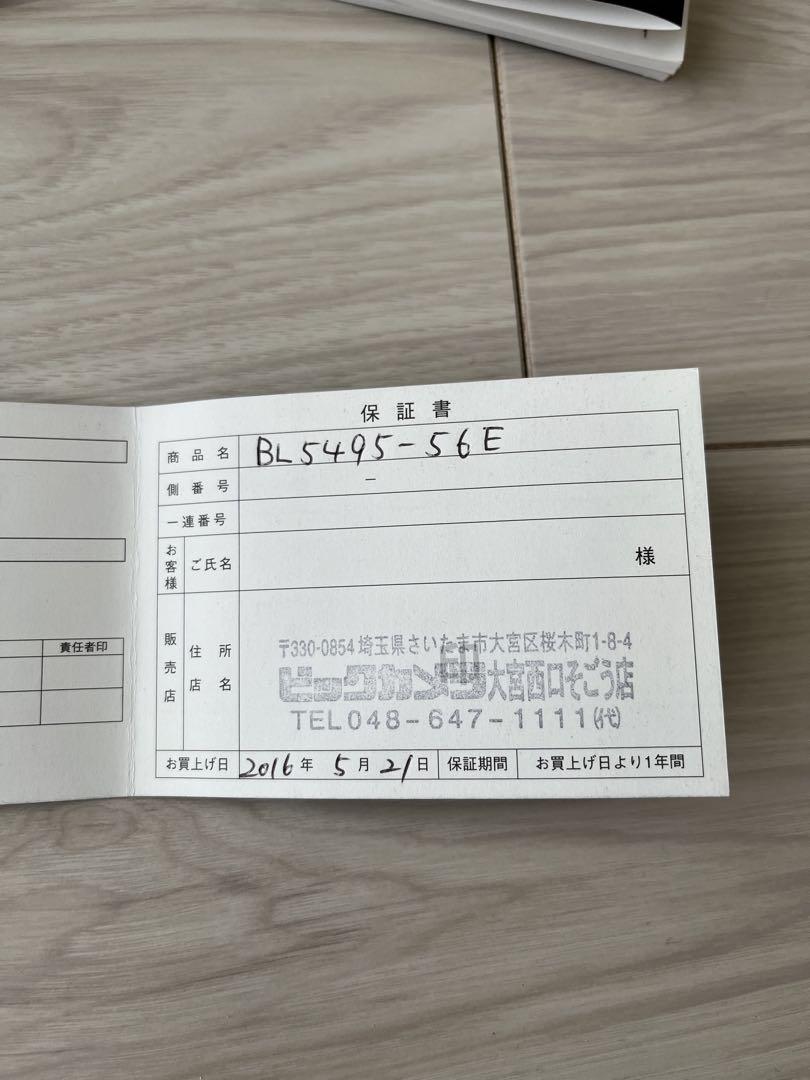 保証書
商品名 BL5495-56E
側番号 －
一連番号
お客様 ご氏名 様
販売店 住所 店名
〒330-0854 埼玉県さいたま市大宮区桜木町1-8-4
ビックカメラ大宮西口そごう店
TEL048-647-1111(代)
お買上げ日 2016年 5月 21日 保証期間 お買上げ日より1年間
責任者印